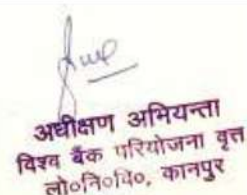 अधीक्षण अभियन्ता
विश्व बैंक परियोजना वृत्त
लो०नि०वि०, कानपुर